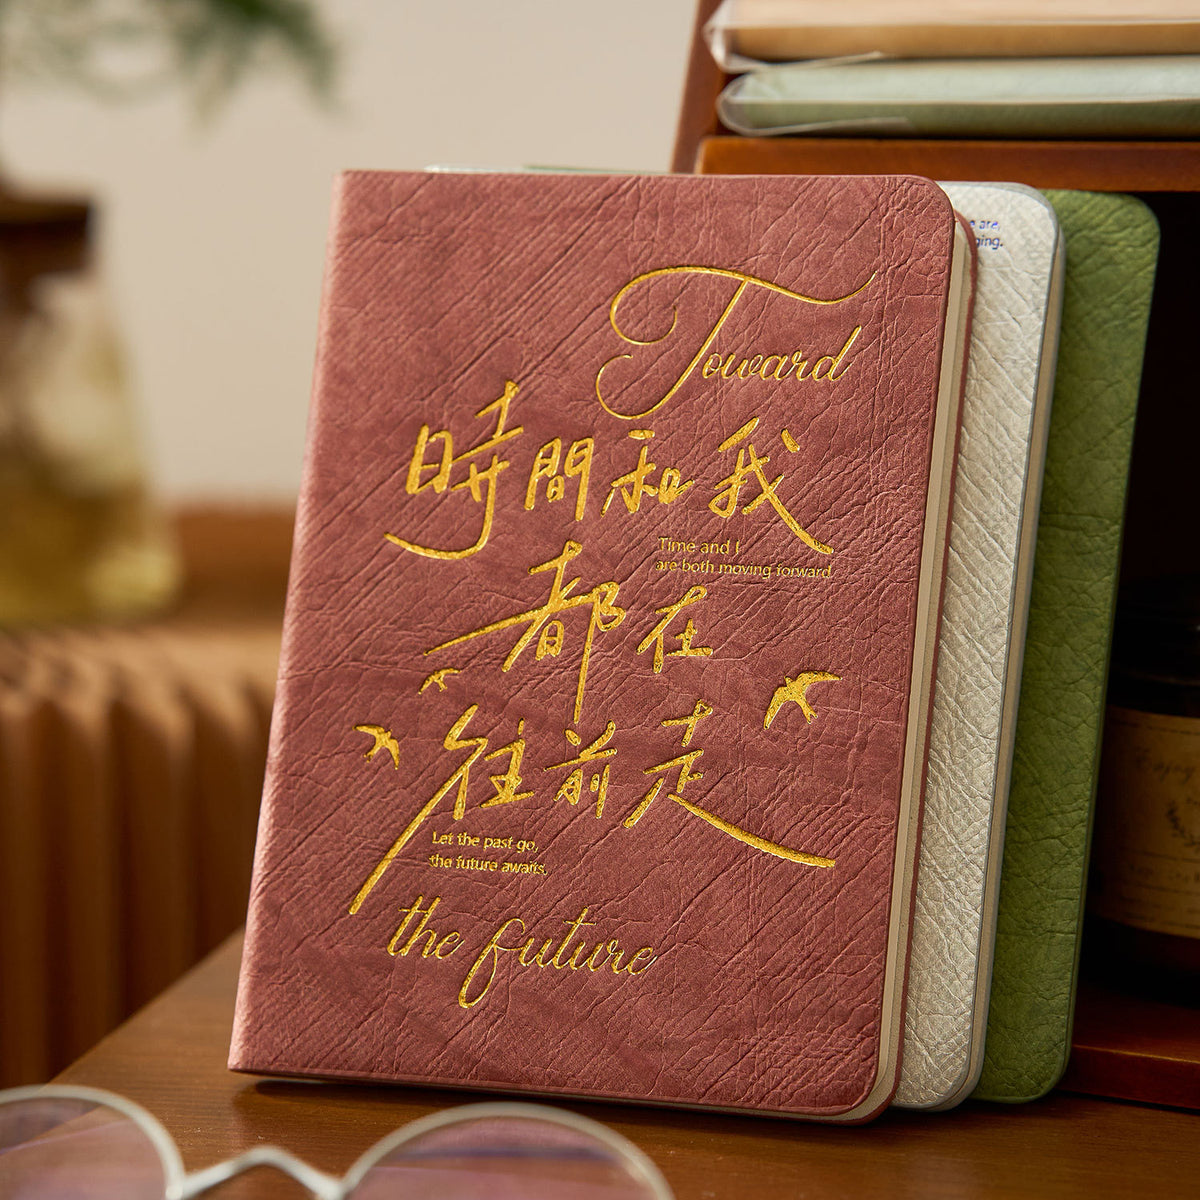 Toward
時間和我
Time and I
are both moving forward
都在
往前走
Let the past go,
the future awaits.
the future
e are,
ging.
Enjoy